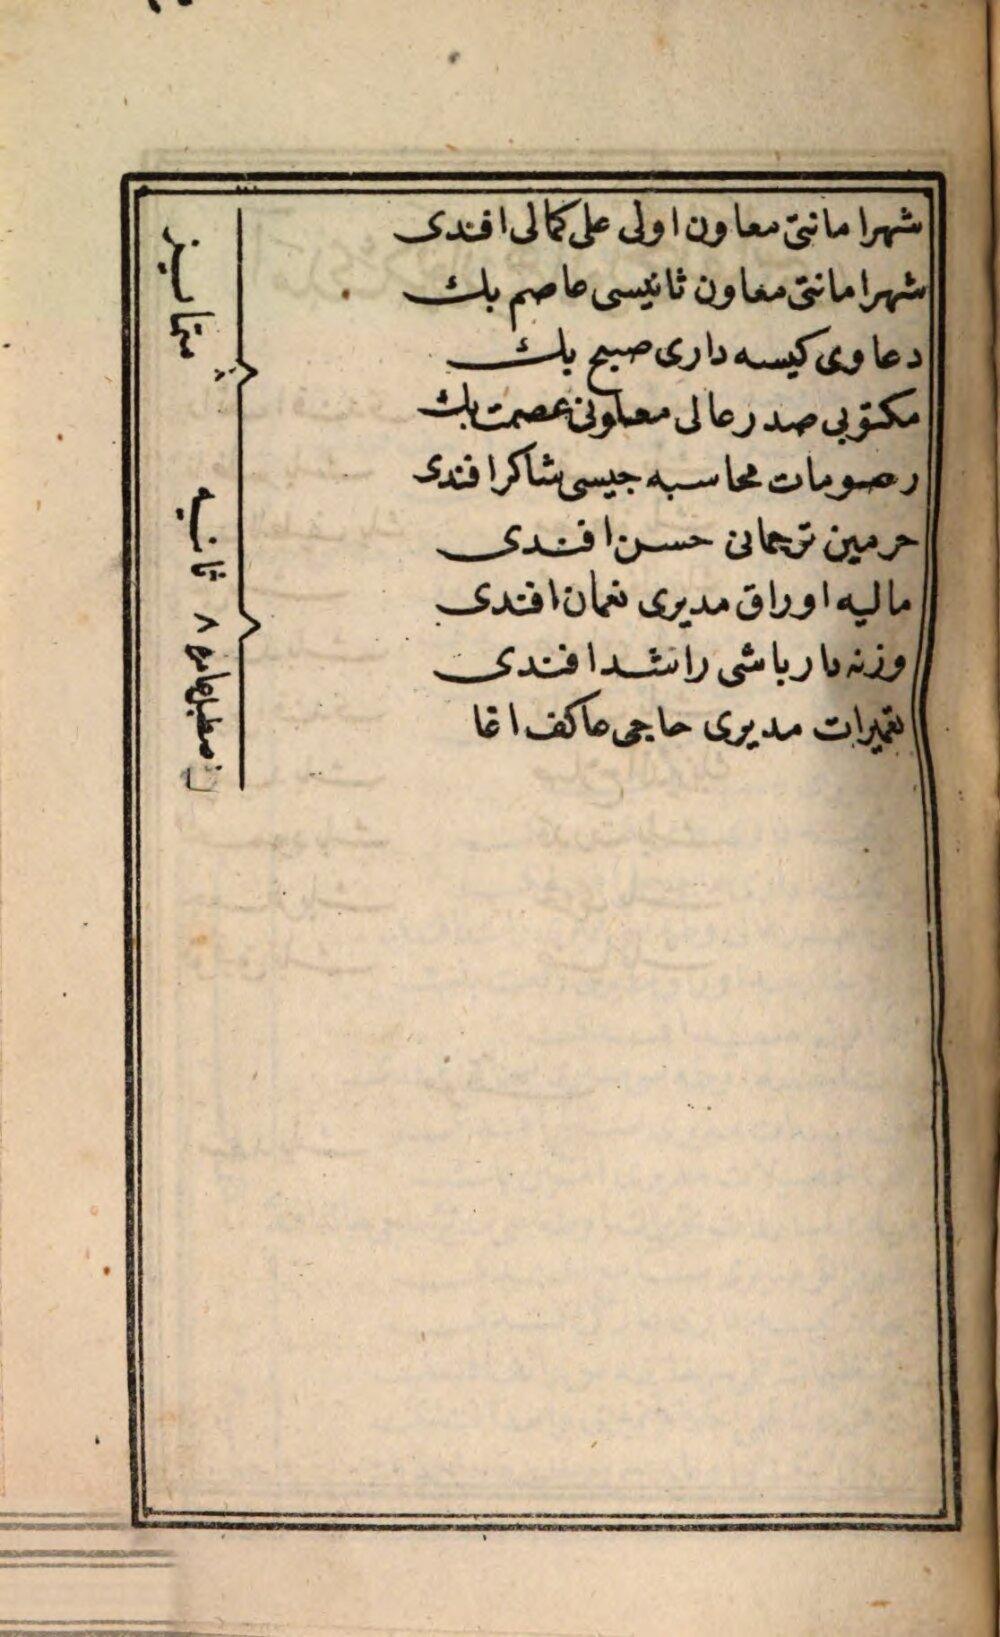 شهرامانتی معاون اولی علی کمالی افندی
شهرامانتی معاون ثانیسی عاصم بك
دعاوی کیسه داری صبیح بك
مکتوبی صدر عالی معاونی عصمت بك
رسومات محاسبه جیسی شاکر افندی
حرمین ترجمانی حسن افندی
مالیه اوراق مدیری نعمان افندی
وزنه دار باشی راشد افندی
تعمیرات مدیری حاجی عاکف اغا
متمایز
ثانیه
اصطبل عامره ۸